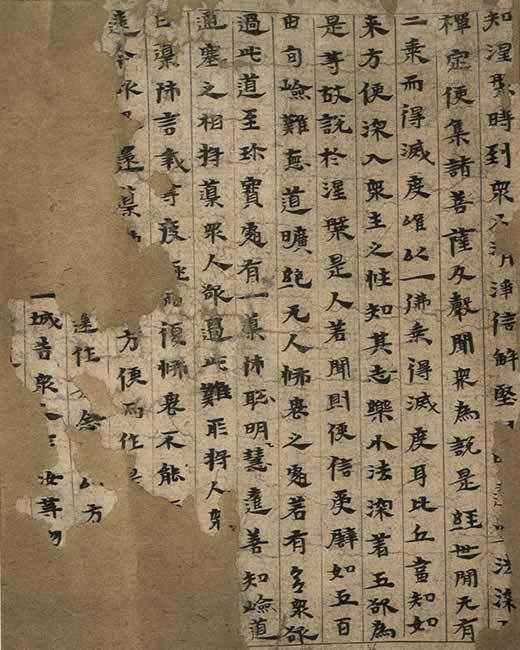 知涅槃時到衆又清淨信解堅法深
禪定便集諸菩薩及聲聞衆為說是經世間无有
二乘而得滅度唯以一佛乘得滅度耳比丘當知如
来方便深入衆生之性知其志樂小法深著五欲為
是等故說於涅槃是人若聞則便信受譬如五百
由旬嶮難惡道曠絶无人怖畏之處若有多衆欲
過此道至珎寶處有一導師聡明慧達善知嶮道
通塞之相将導衆人欲過此難所将人衆
白導師言我等疲極而復怖畏不能
遠今欲退還導師方便而作是
作念以方
一城告衆汝等勿